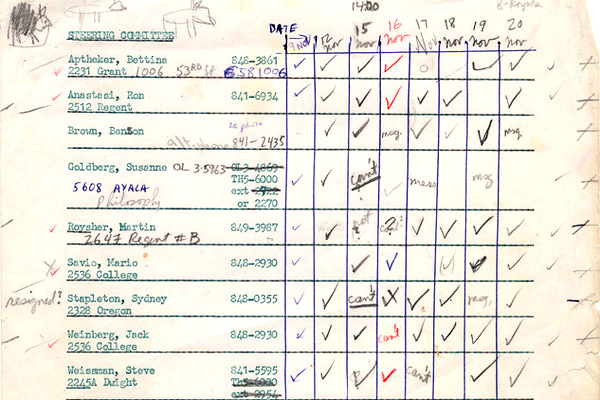 14:00
8-Roysher
STEERING COMMITTEE DATE 9 NOV 12 nov 15 nov 16 nov 17 Nov 18 nov 19 nov 20 nov
Aptheker, Bettina 848-3861
2231 Grant 1006 53RD St 6581006
Anastasi, Ron 841-6934
2512 Regent
Brown, Benson msg msg.
841-2435
Goldberg, Susanne OL 3-5963 OL3-4869 can't mess msg
5608 AYALA TH5-6000
Philosophy ext 2722
or 2270
Roysher, Martin 849-3987 not ? can't?
2647 Regent #B
Savio, Mario 848-2930
2536 College
resigned? Stapleton, Sydney 848-0355 can't msg.
2328 Oregon
Weinberg, Jack 848-2930 can't
2536 College
Weissman, Steve 841-5595 can't
2245A Dwight TH5-6000
ext 2954